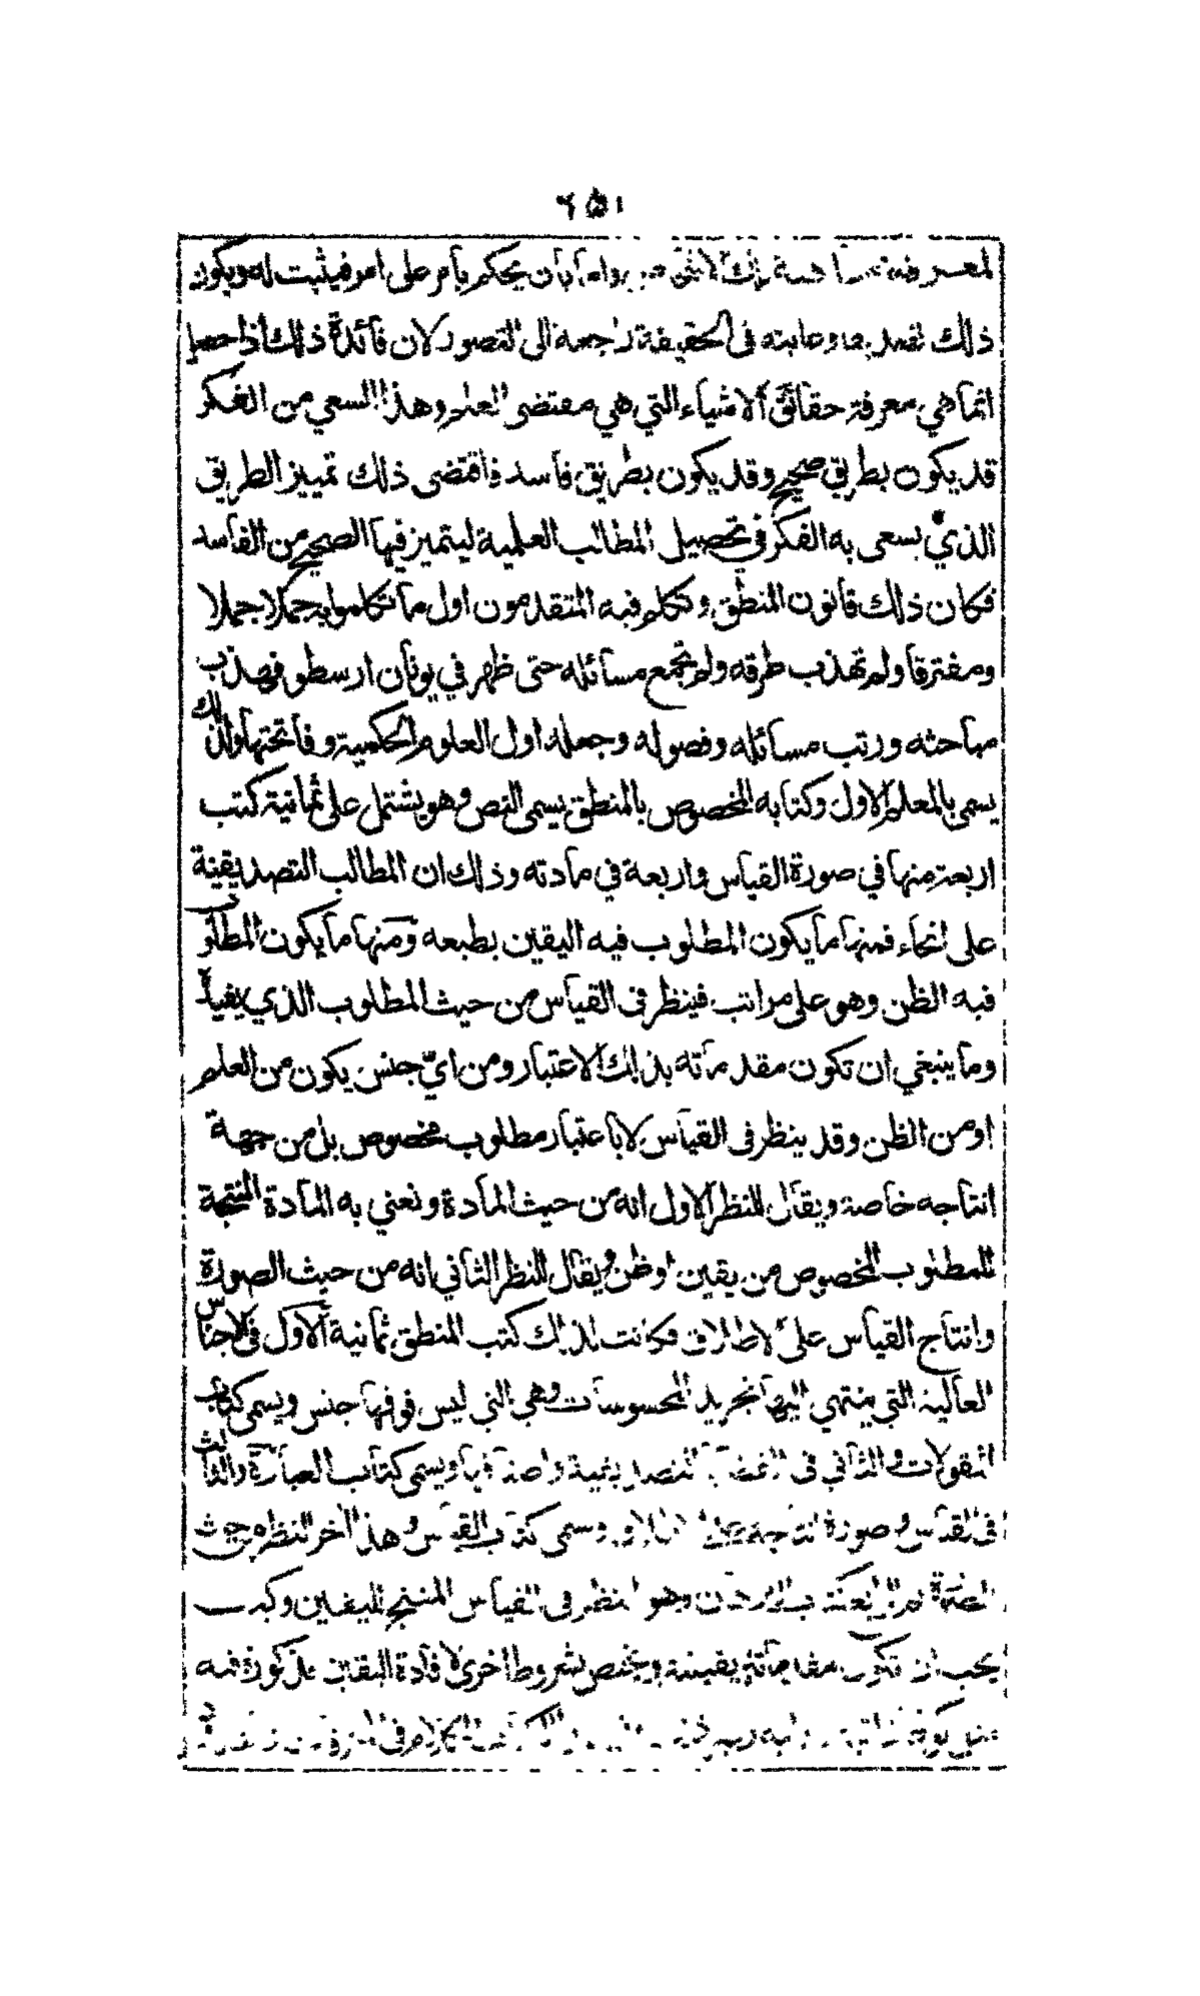 ٦٥١
لمعرفة ماهية تلك الأشخاص واما بأن يحكم بأمر على امر فيثبت له ويكون
ذلك تصديقا وغايته في الحقيقة راجعة الى التصور لان فائدة ذلك اذا حصل
انما هي معرفة حقائق الاشياء التي هي مقتضى العلم وهذا السعي من الفكر
قد يكون بطريق صحيح وقد يكون بطريق فاسد فاقتضى ذلك تمييز الطريق
الذي يسعى به الفكر في تحصيل المطالب العلمية ليتميز فيها الصحيح من الفاسد
فكان ذلك قانون المنطق وتكلم فيه المتقدمون اول ما تكلموا به جملا جملا
ومفترقا ولم تهذب طرقه ولم تجمع مسائله حتى ظهر في يونان ارسطو فهذب
مباحثه ورتب مسائله وفصوله وجعله اول العلوم الحكمية وفاتحتها ولذلك
يسمى بالمعلم الاول وكتابه المخصوص بالمنطق يسمى النص وهو يشتمل على ثمانية كتب
اربعة منها في صورة القياس واربعة في مادته وذلك ان المطالب التصديقية
على انحاء فمنها ما يكون المطلوب فيه اليقين بطبعه ومنها ما يكون المطلوب
فيه الظن وهو على مراتب فينظر في القياس من حيث المطلوب الذي يفيده
وما ينبغي ان تكون مقدماته بذلك الاعتبار ومن اي جنس يكون من العلم
او من الظن وقد ينظر في القياس لا باعتبار مطلوب مخصوص بل من جهة
انتاجه خاصة ويقال للنظر الاول انه من حيث المادة ونعني به المادة المنتجة
للمطلوب المخصوص من يقين او ظن ويقال للنظر الثاني انه من حيث الصورة
وانتاج القياس على الاطلاق فكانت لذلك كتب المنطق ثمانية الاول في الاجناس
العالية التي ينتهي اليها تجريد المحسوسات وهي التي ليس فوقها جنس ويسمى كتاب
المقولات والثاني في القضايا التصديقية واصنافها ويسمى كتاب العبارة والثالث
في القياس وصورة انتاجه على الاطلاق ويسمى كتاب القياس وهذا آخر النظر من حيث
الصورة ثم الرابع كتاب البرهان وهو النظر في القياس المنتج لليقين وكيف
يجب ان تكون مقدماته يقينية ويختص بشروط اخرى لافادة اليقين مذكورة فيه
الكلام في